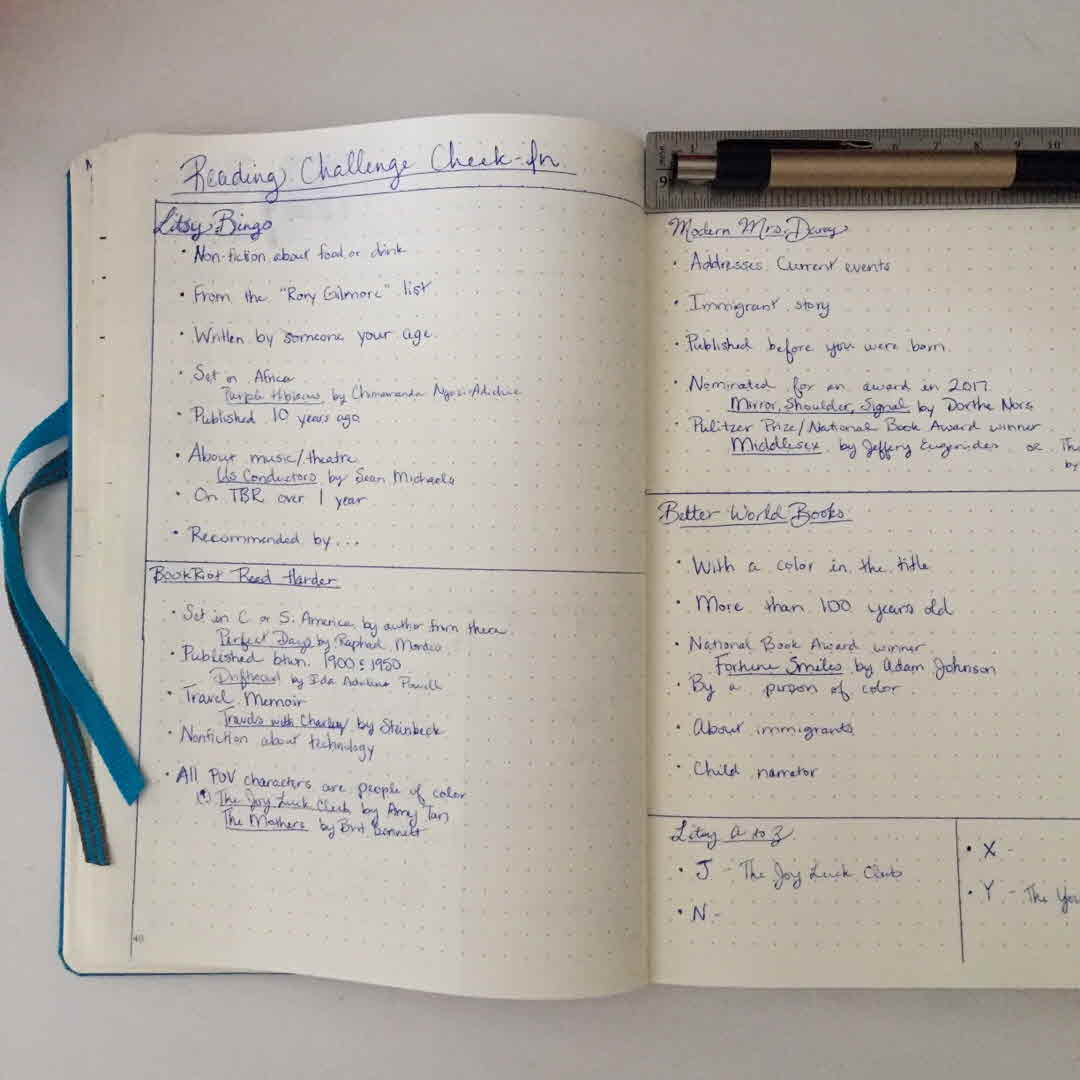 Reading Challenge Check-In
Litsy Bingo
• Non-fiction about food or drink
• From the "Rory Gilmore" list
• Written by someone your age.
• Set in Africa
Purple Hibiscus by Chimamanda Ngozi Adichie
• Published 10 years ago
• About music/theatre
Us Conductors by Sean Michaels
• On TBR over 1 year
• Recommended by...
BookRiot Read Harder
• Set in C. or S. America, by author from there.
Perfect Days by Raphael
• Published btwn. 1900 & 1950
by Ida Powell
• Travel Memoir
Travels with Charley by Steinbeck
• Nonfiction about technology
• All POV characters are people of color
The Joy Luck Club by Amy Tan
The Mothers by Brit Bennett
40
1 6 7 8 9 10
9
Modern Mrs. Darcy
• Addresses Current events
• Immigrant story
• Published before you were born.
• Nominated for an award in 2017.
Mirror, Shoulder, Signal by Dorthe Nors
• Pulitzer Prize/National Book Award winner
Middlesex by Jeffery Eugenides or
by
Better World Books
• With a color in the title
• More than 100 years old
• National Book Award winner
Fortune Smiles by Adam Johnson
• By a person of color
• About immigrants
• Child narrator
Litsy A to Z
• J - The Joy Luck Club
• N -
• X -
• Y - The You